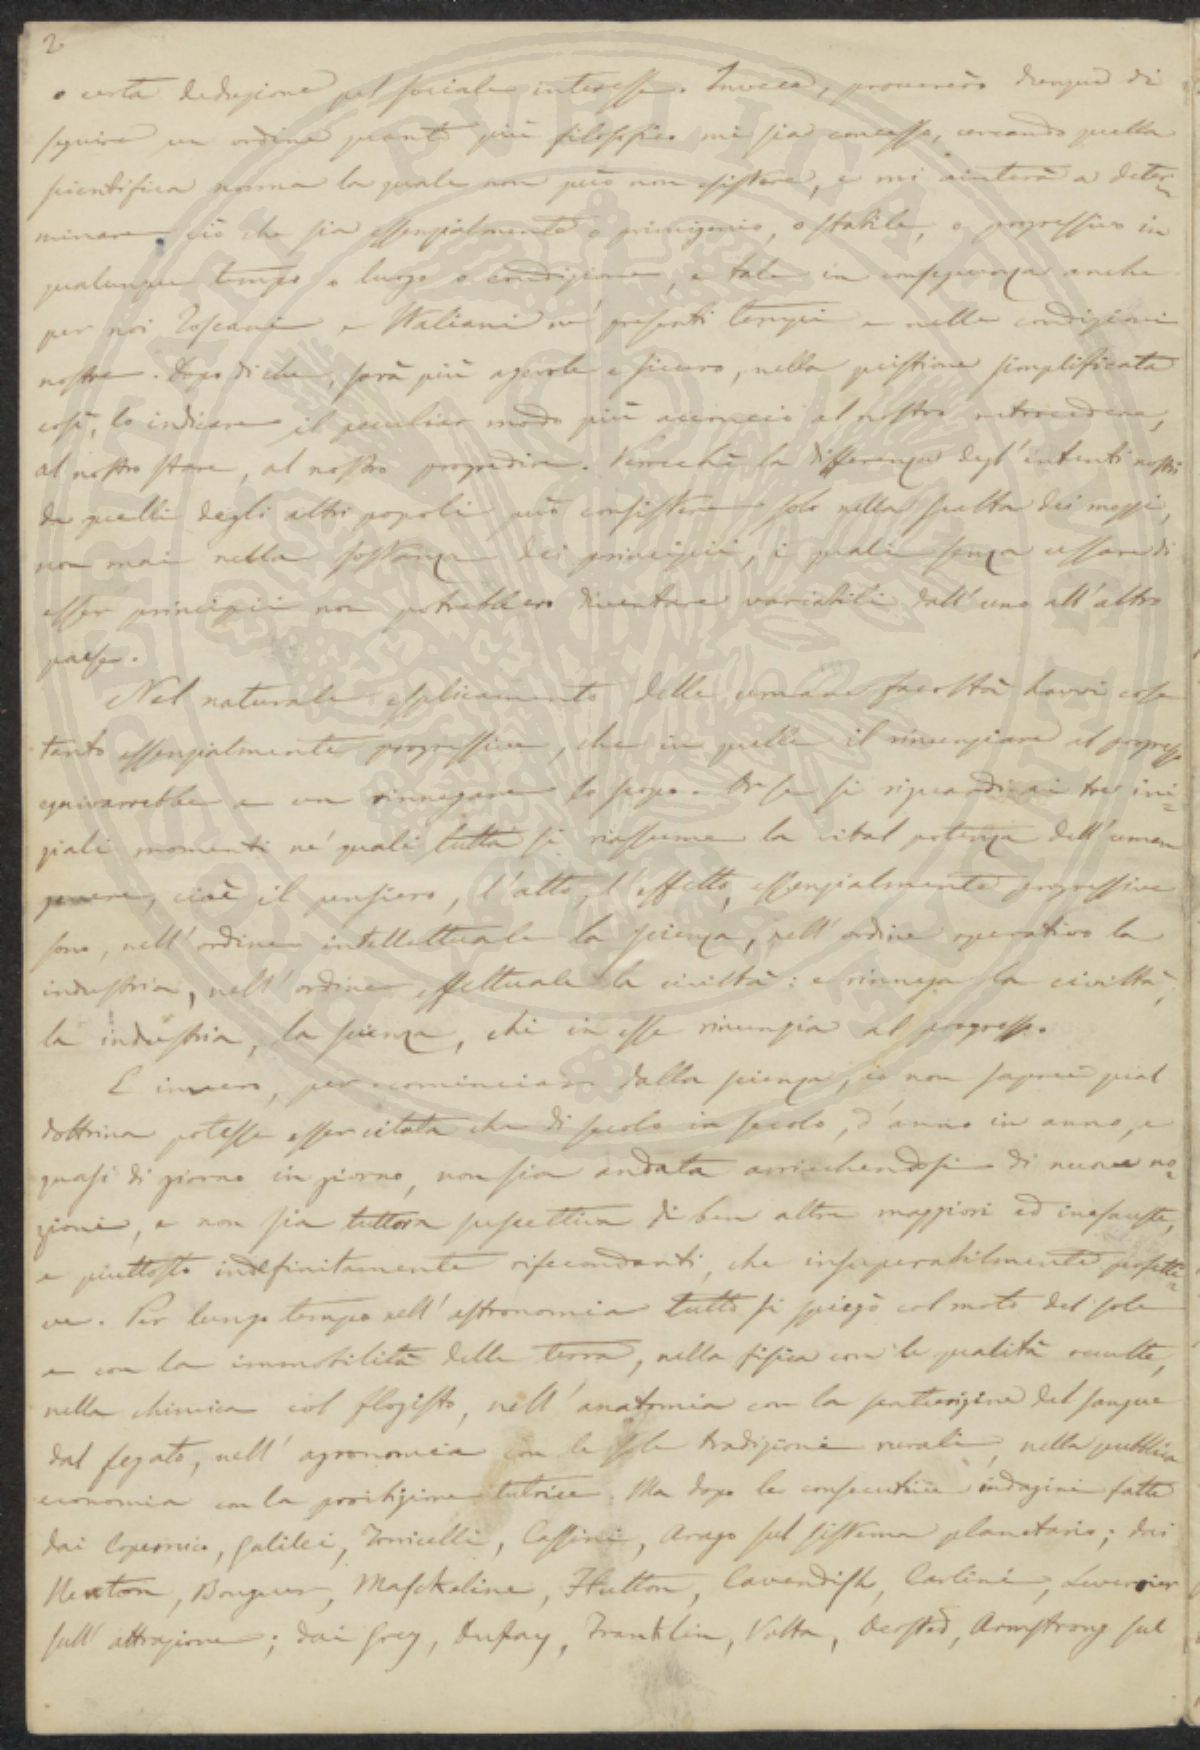 2
o certa deduzione pel sociale interesse. Invece, proverò dunque di
seguire un ordine quanto più filosofico mi sia concesso, cercando quella
scientifica norma la quale non può non esistere, e mi aiuterà a deter-
minare ciò che sia essenzialmente o primigenio, o stabile, o progressivo in
qualunque tempo o luogo o condizione, e tale in conseguenza anche
per noi Toscani e Italiani ne' presenti tempi e nelle condizioni
nostre. Dopo di che, sarà più agevole e sicuro, nella quistione simplificata
così, lo indicare il peculiar modo più acconcio al nostro retrocedere,
al nostro stare, al nostro progredire. Perocchè la differenza degl'intenti nostri
da quelli degli altri popoli può consistere solo nella scelta dei mezzi,
non mai nella sostanza dei principii, i quali senza cessare di
esser principii non potrebbero diventare variabili dall'uno all'altro
paese.
Nel naturale esplicamento delle umane facoltà havvi cose
tanto essenzialmente progressive, che in quelle il rinunziare al progresso
equivarrebbe a un rinnegare lo scopo. Or se si riguardi ai tre ini-
ziali momenti ne' quali tutta si riassume la vital potenza dell'uman
genere, cioè il pensiero, l'atto, l'effetto, essenzialmente progressive
sono, nell'ordine intellettuale la scienza, nell'ordine operativo la
industria, nell'ordine effettuale la civiltà: e rinnega la civiltà,
la industria, la scienza, chi in esse rinunzia al progresso.
E invero, per cominciare dalla scienza, io non saprei qual
dottrina potesse esser citata che di secolo in secolo, d'anno in anno, e
quasi di giorno in giorno, non sia andata arricchendosi di nuove no-
zioni, e non sia tuttora suscettiva di ben altre maggiori ed inesauste,
e piuttosto indefinitamente rifecondanti, che insuperabilmente perfetti-
ve. Per lungo tempo nell'astronomia tutto si spiegò col moto del sole
e con la immobilità della terra, nella fisica con le qualità occulte,
nella chimica col flogisto, nell'anatomia con la scaturigine del sangue
dal fegato, nell'agronomia con le sole tradizioni rurali, nella pubblica
economia con la proibizione tutrice. Ma dopo le consecutive indagini fatte
dai Copernico, Galilei, Torricelli, Cassini, Arago sul sistema planetario; dai
Newton, Bouguer, Mascheline, Hutton, Cavendish, Carlini, Leverrier
sull'attrazione; dai Grey, Dufay, Franklin, Volta, Oersted, Armstrong sul